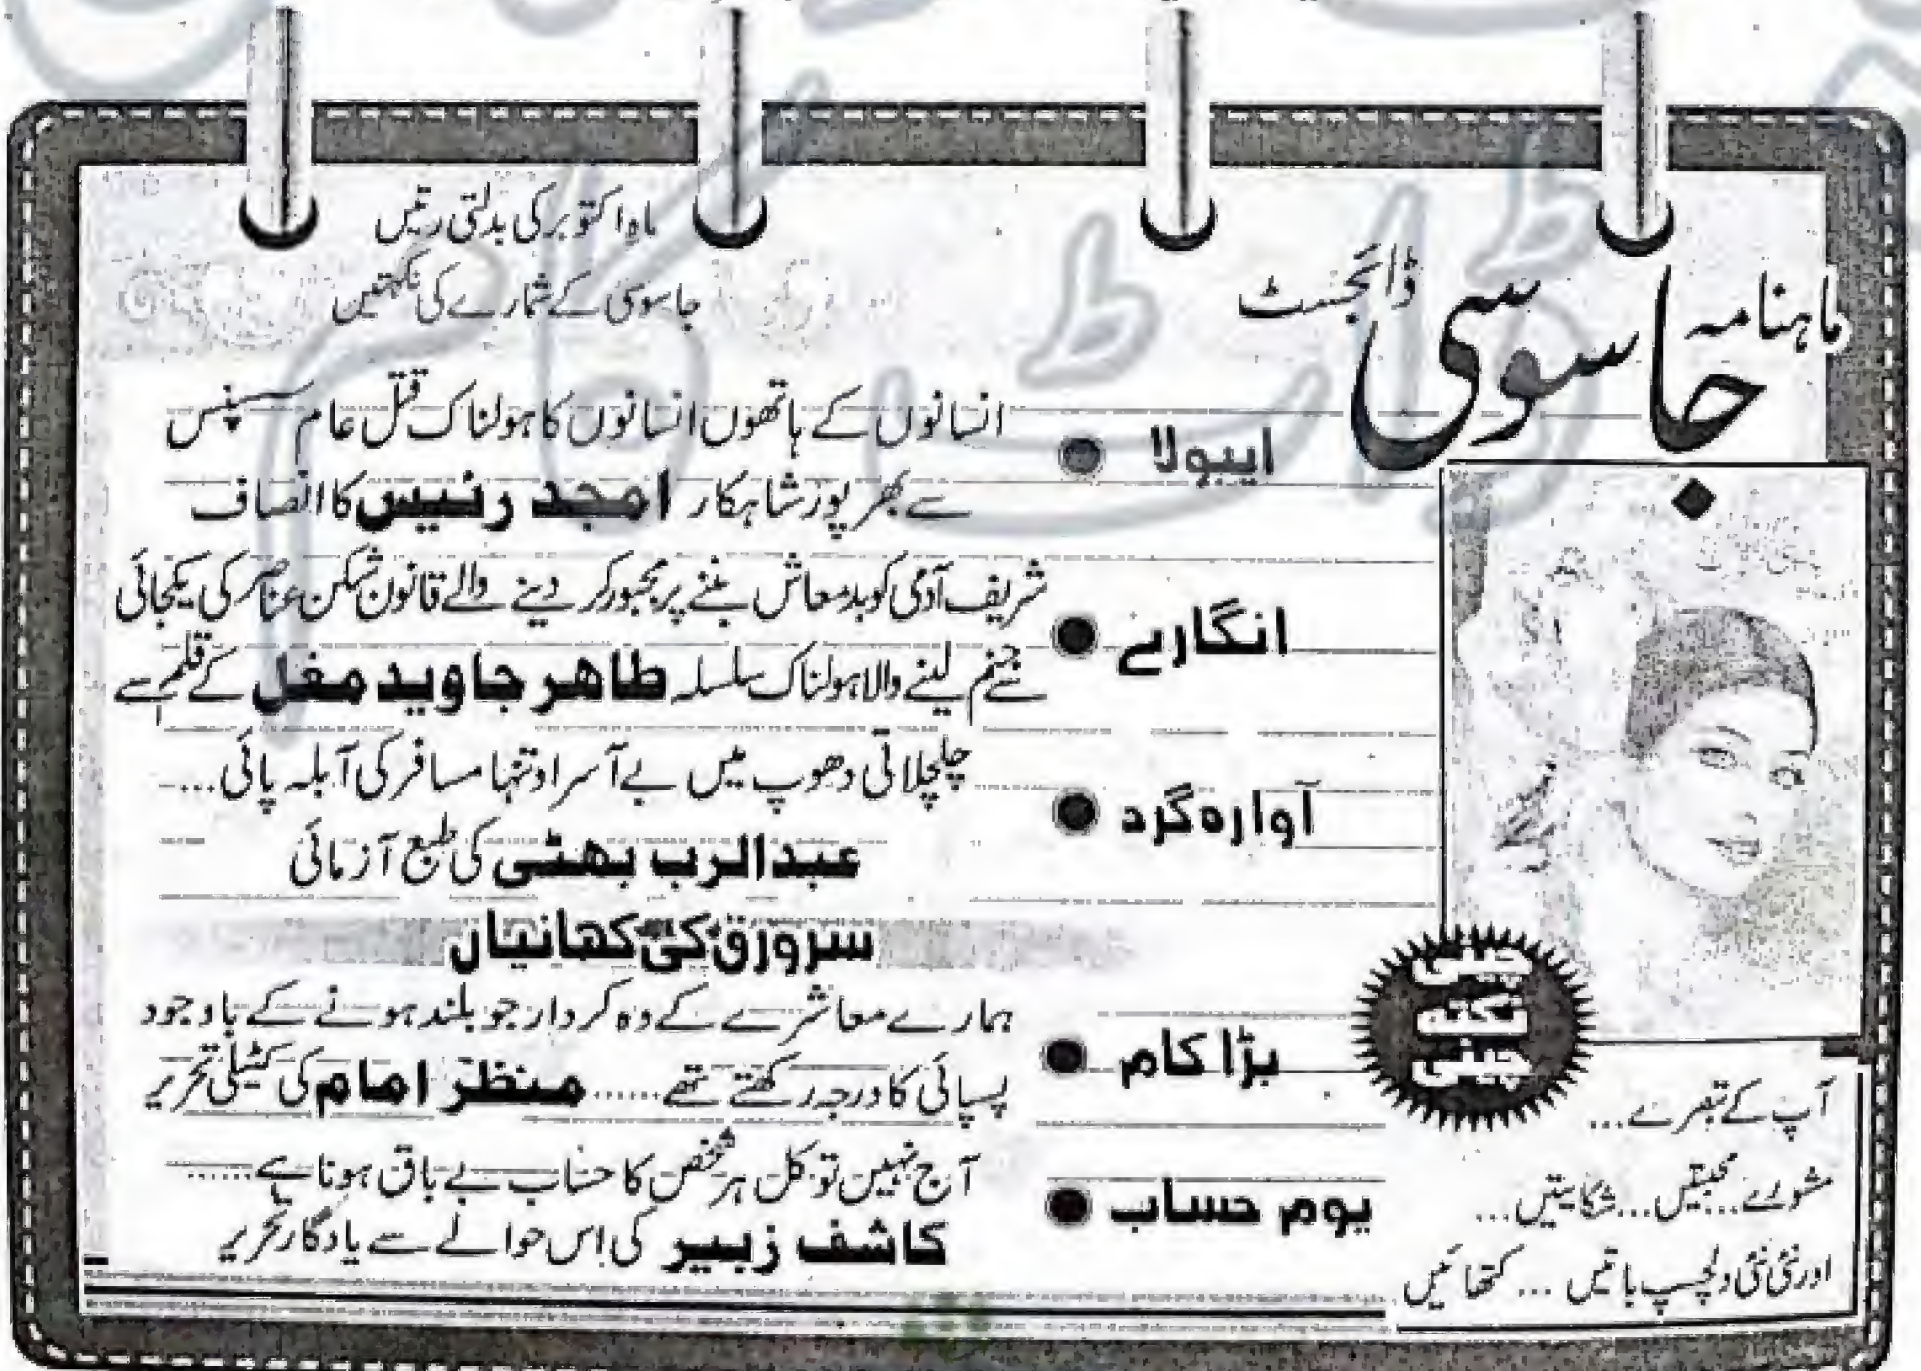 ماہنامہ
جاسوسی
ڈائجسٹ
ماہِ اکتوبر کی بدلتی رتیں
جاسوسی کے شمارے کی نکہتیں
ایبولا
انسانوں کے ہاتھوں انسانوں کا ہولناک قتل عام سسپنس
سے بھر پور شاہکار امجد رئیس کا انصاف
انگارے
شریف آدمی کو بدمعاش بننے پر مجبور کر دینے والے قانون شکن عناصر کی یکجائی
جنم لینے والا ہولناک سلسلہ طاہر جاوید مغل کے قلم سے
آوارہ گرد
چلچلاتی دھوپ میں بے آسرا و تنہا مسافر کی آبلہ پائی...
عبدالرب بھٹی کی طبع آزمائی
سرورق کی کہانیاں
بڑا کام
ہمارے معاشرے کے وہ کردار جو بلند ہونے کے باوجود
پسپائی کا درجہ رکھتے تھے...... منظر امام کی کٹیلی تحریر
یوم حساب
آج نہیں تو کل ہر شخص کا حساب بے باق ہونا ہے......
کاشف زبیر کی اس حوالے سے یادگار تحریر
چینی
نکتہ
چینی
آپ کے تبصرے...
مشورے... محبتیں... شکایتیں...
اور نئی نئی دلچسپ باتیں... کتھائیں